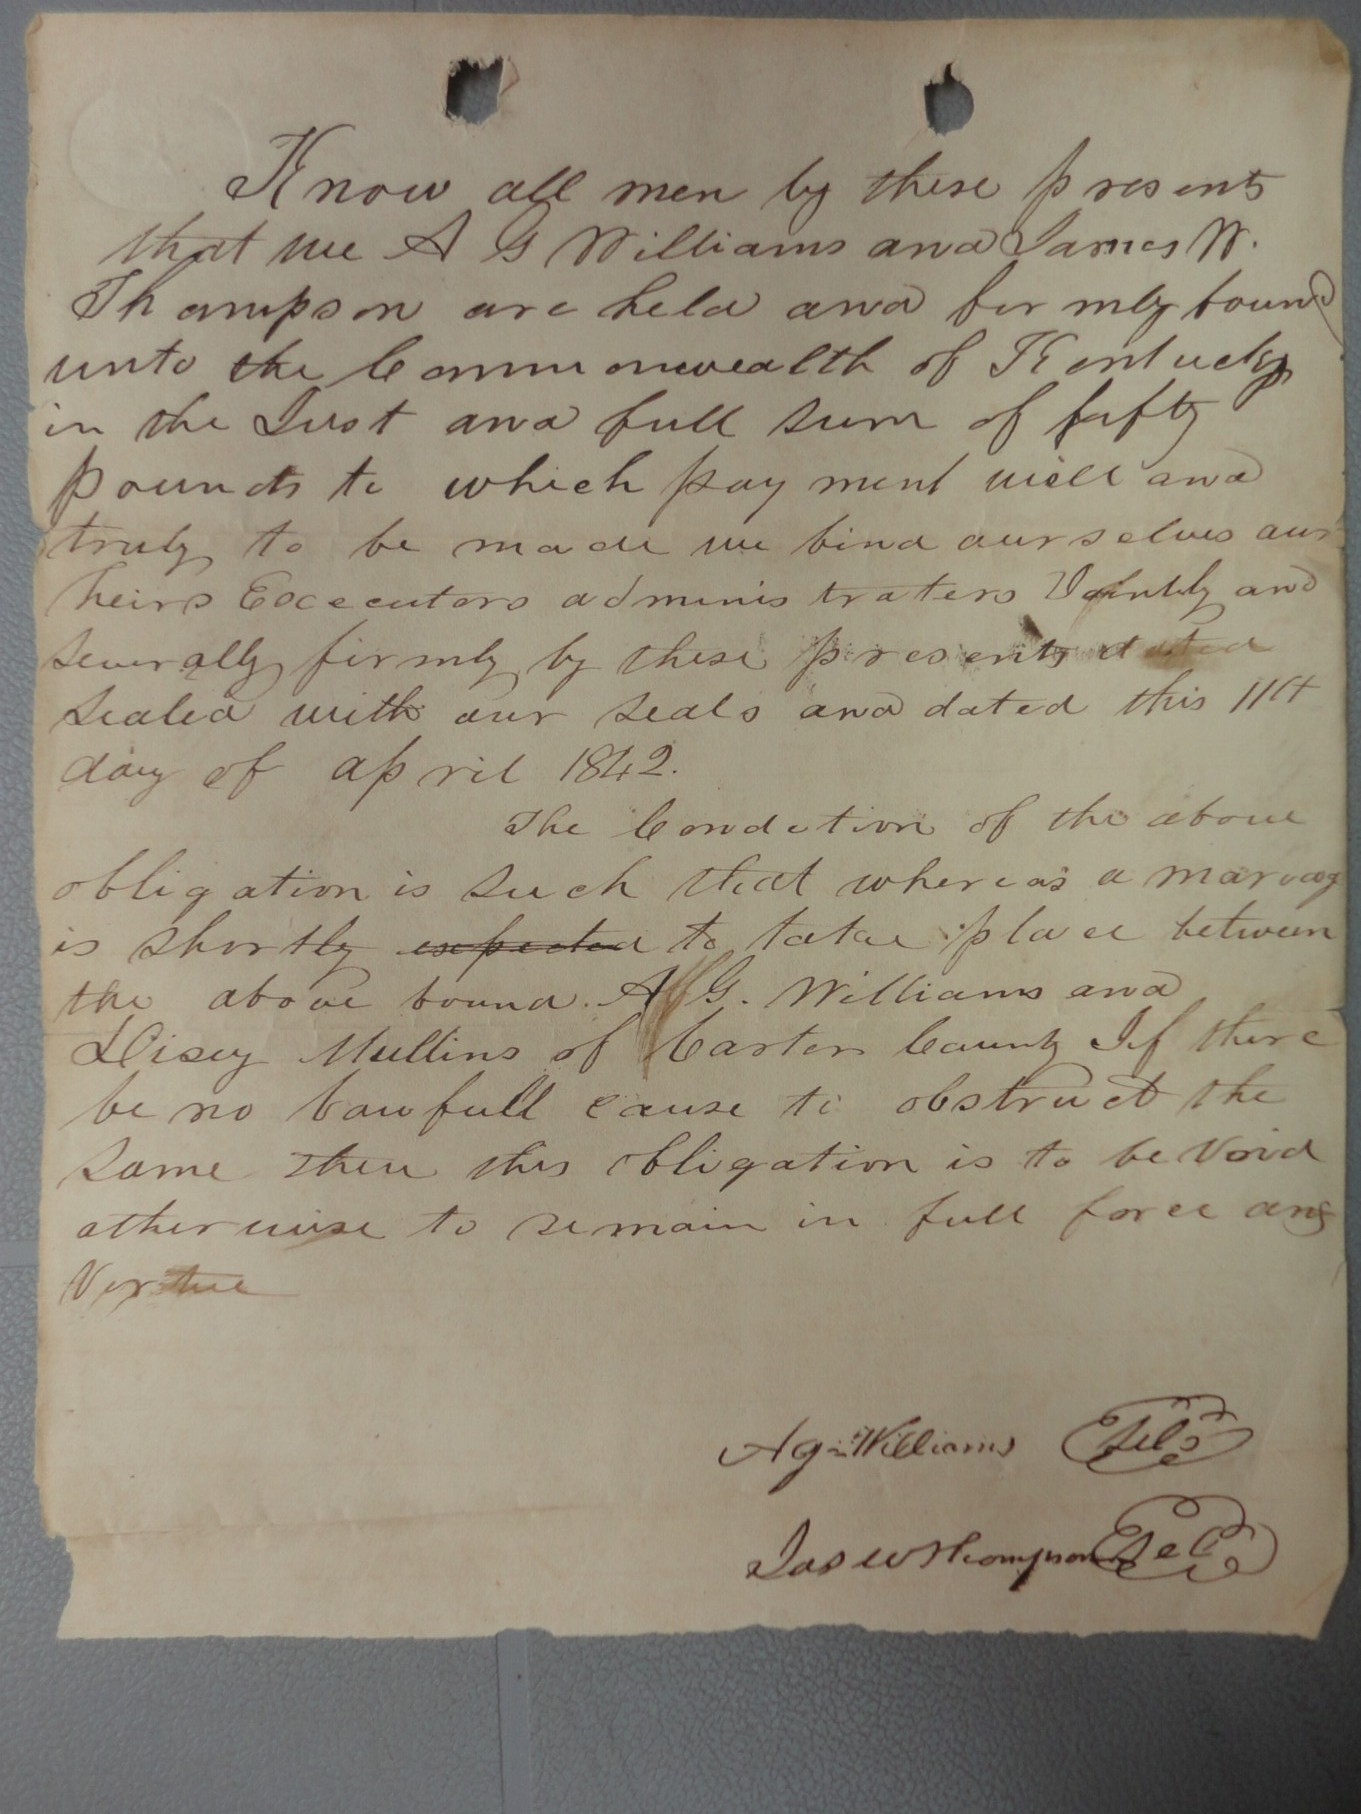 Know all men by these presents
that we A G Williams and James W.
Thompson are held and firmly bound
unto the Commonwealth of Kentucky
in the Just and full sum of fifty
pounds to which payment well and
truly to be made we bind ourselves our
heirs Excecutors administraters Jointly and
severally firmly by these presents
sealed with our seals and dated this 11th
day of april 1842.
The Condition of the above
obligation is such that whereas a marriag
is shortly expected to take place between
the above bound. A G. Williams and
Disey Mullins of Carter County If there
be no lawfull cause to obstruct the
same then this obligation is to be Void
otherwise to remain in full force and
Vertue
A G Williams Seal
Jas W Thompson Seal